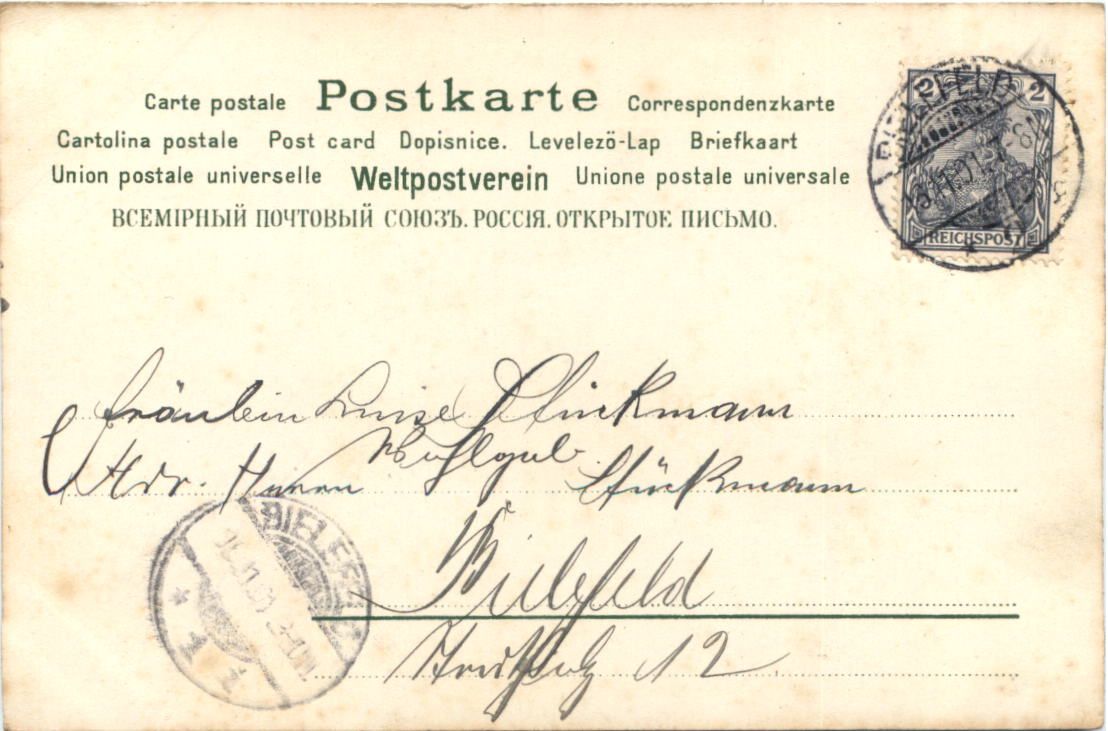 Carte postale Postkarte Correspondenzkarte
Cartolina postale Post card Dopisnice. Levelezö-Lap Briefkaart
Union postale universelle Weltpostverein Unione postale universale
ВСЕМІРНЫЙ ПОЧТОВЫЙ СОЮЗЪ. РОССІЯ. ОТКРЫТОЕ ПИСЬМО.
2 2
REICHSPOST
BIELEFELD
Fräulein Luise Stückmann
Wohlgeb.
Adr. Herrn Stückmann
Bielefeld
12
BIELEFELD